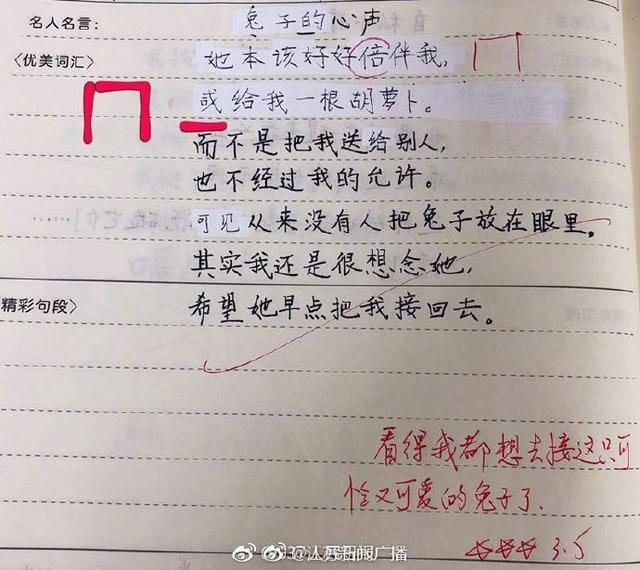 名人名言：
兔子的心声
〈优美词汇〉
她本该好好倍伴我，
或给我一根胡萝卜。
而不是把我送给别人，
也不经过我的允许。
可见从来没有人把兔子放在眼里。
其实我还是很想念她，
精彩句段〉
希望她早点把我接回去。
看得我都想去接这只可
怜又可爱的兔子了。
3.5